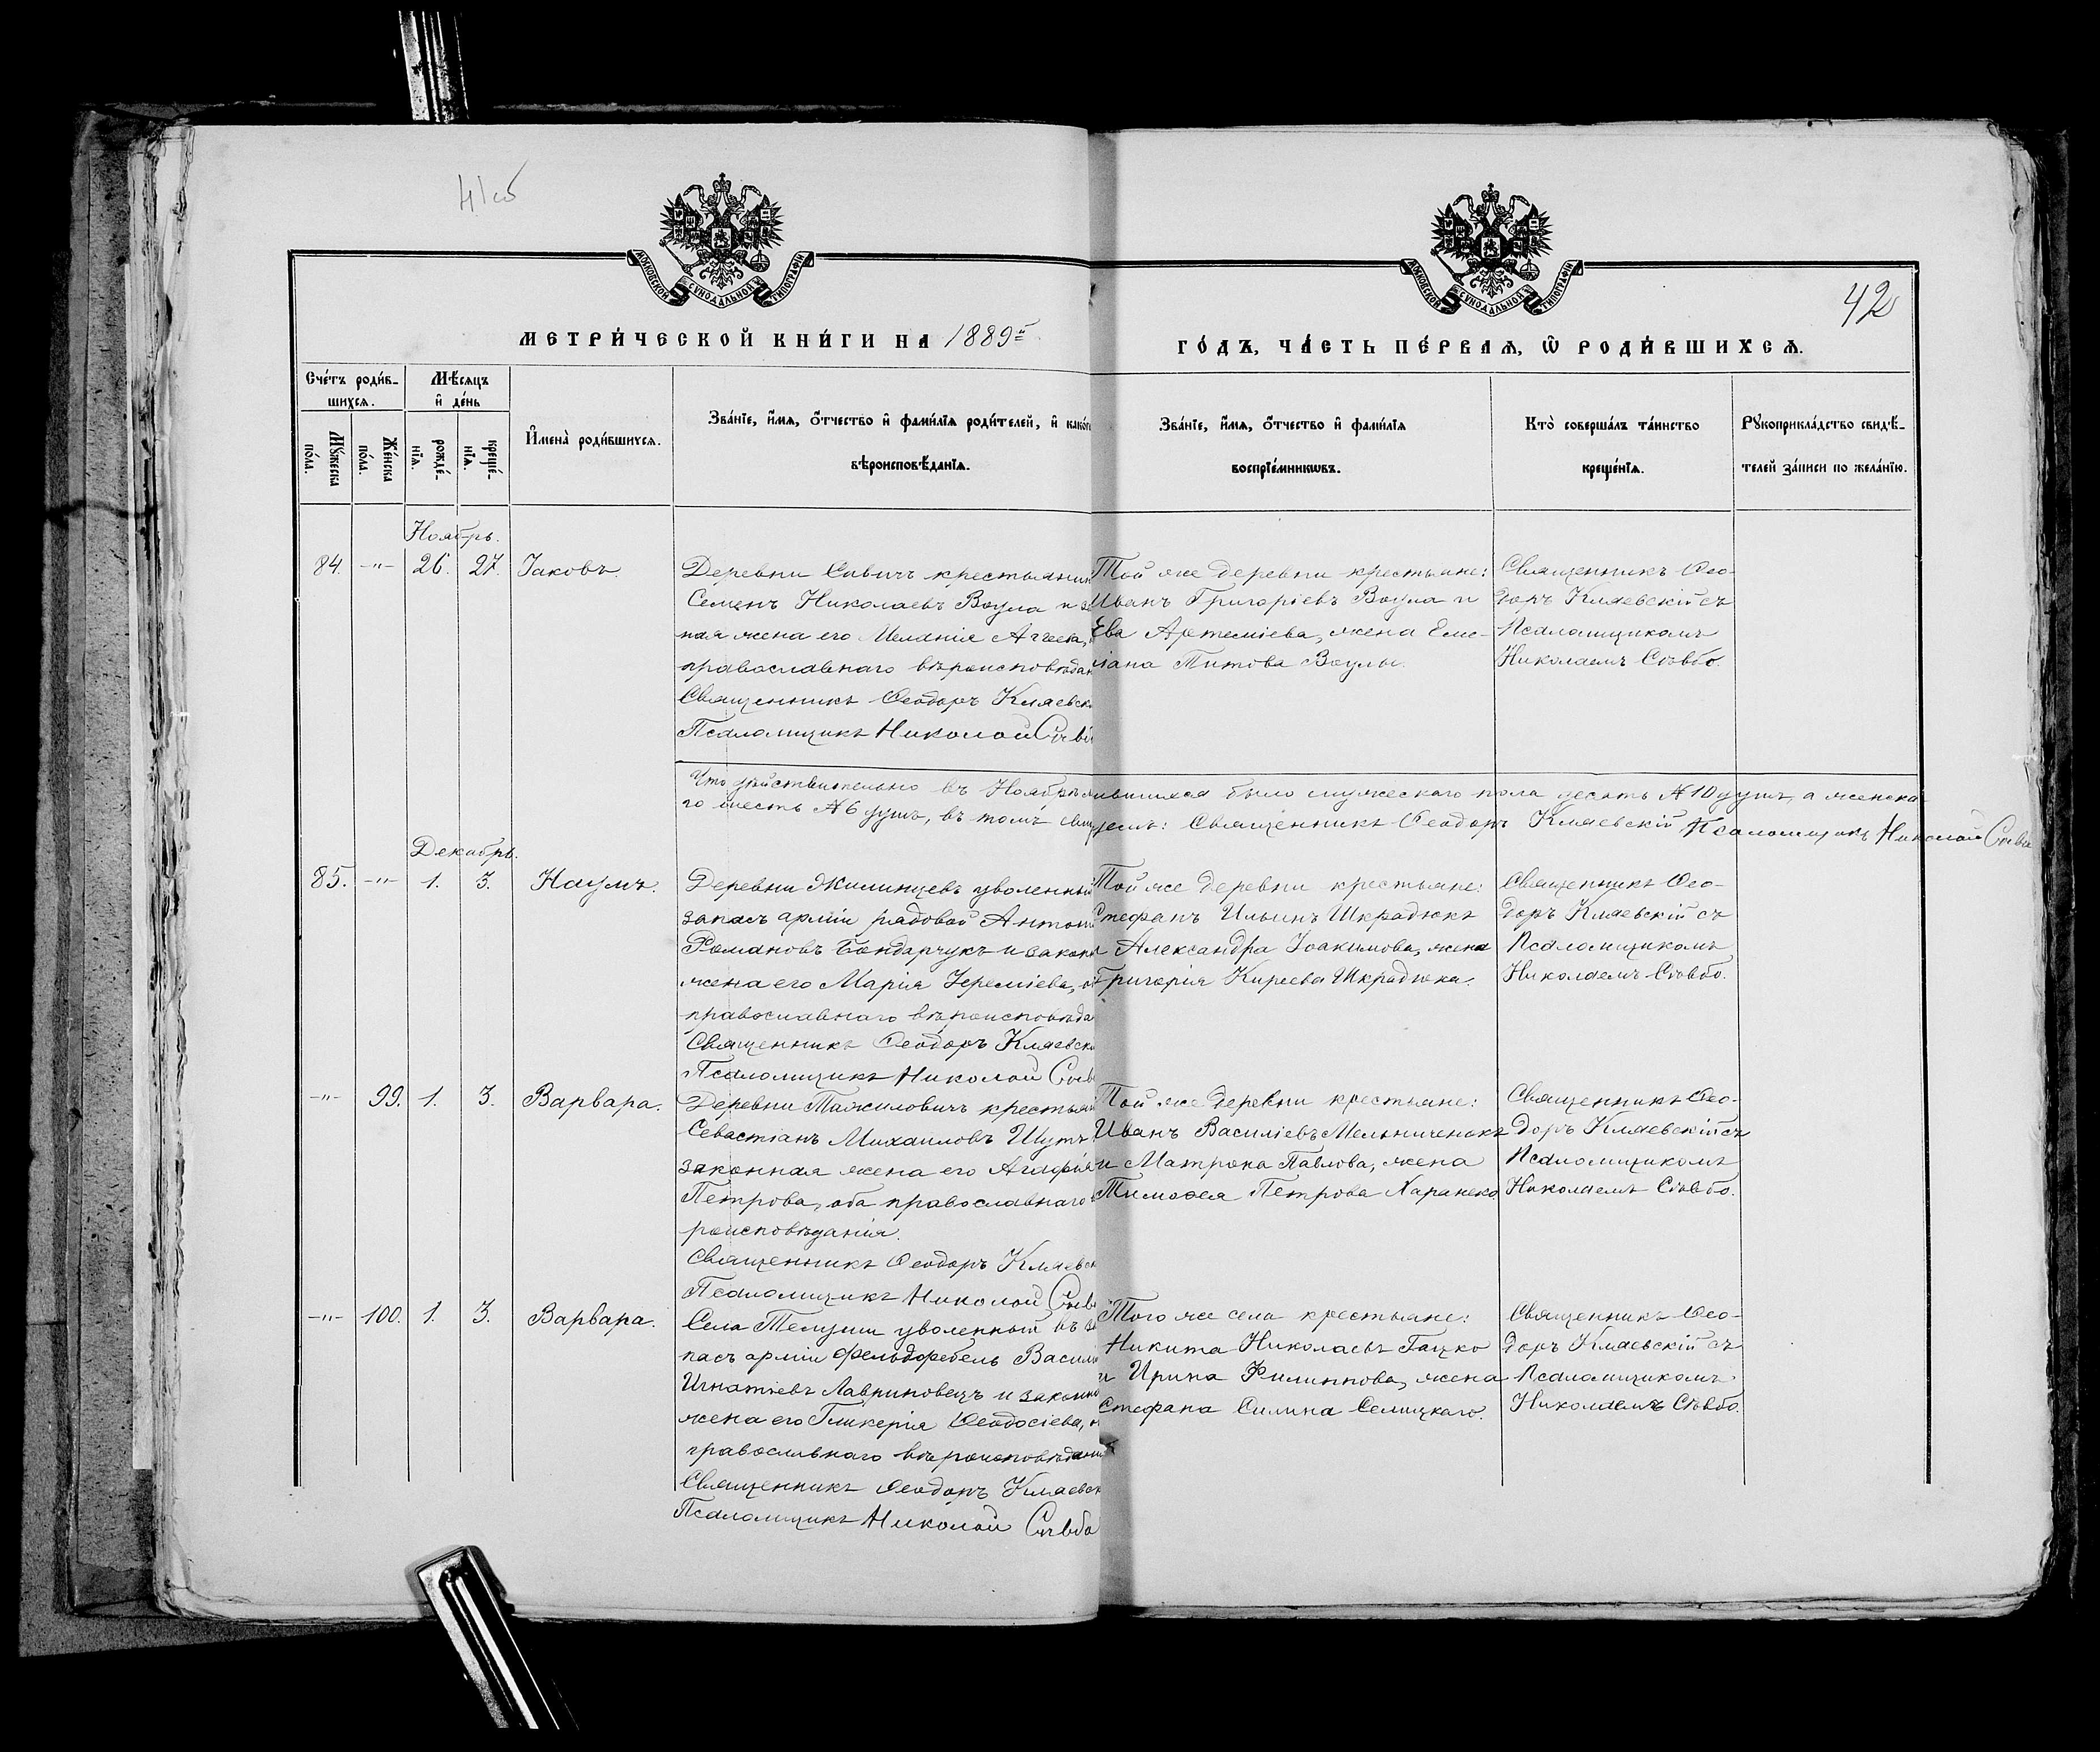 41 об
42
МОСКОВСКОЙ СѴНОДАЛЬНОЙ ТИПОГРАФІИ
МОСКОВСКОЙ СѴНОДАЛЬНОЙ ТИПОГРАФІИ
МЕТРИ́ЧЕСКОЙ КНИ́ГИ НА 1889й
ГО́ДЪ, ЧА́СТЬ ПЕ́РВАѦ, Ѿ РОДИ́ВШИХСѦ.
Сче́тъ роди́в-
шихсѧ.
Мꙋжеска
по́ла.
Же́нска
по́ла.
Мѣ́сѧцъ
и҆ де́нь
рожде́-
нїѧ.
креще́-
нїѧ.
И҆мена̀ роди́вшихсѧ.
Зва́нїе, и҆́мѧ, ѻ҆́тчество и҆ фами́лїѧ роди́телей, и҆ како́г
вѣроисповѣ́данїѧ.
Зва́нїе, и҆́мѧ, ѻ҆́тчество и҆ фами́лїѧ
воспрїе́мникѡвъ.
Кто̀ соверша́лъ та́инство
креще́нїѧ.
Рꙋкоприкла́дство свидѣ́-
телей за́писи по жела́нїю.
Ноябрь.
84. -"- 26. 27. Іаковъ.
Деревни Сивичъ крестьянин
Семенъ Николаевъ Воула и за
ная жена его Меланія Аггеева,
православнаго вѣроисповѣдан
Священникъ Ѳеодоръ Кляевск
Псаломщикъ Николай
Той же деревни крестьяне:
Иванъ Григоріевъ Воула и
Ева Артеміева, жена Еме-
ліана Титова Воулы.
Священникъ Ѳео-
доръ Кляевскій съ
Псаломщикомъ
Николаемъ Сѣвбо.
Что дѣйствительно въ Ноябрѣ ившихся было мужескаго пола десять №10 душъ, а женска
го шесть №6 душъ, въ томъ свид емъ: Священникъ Ѳеодоръ Кляевскій Псаломщикъ Николай Сѣвбо
Декабрь.
85. -"- 1. 3. Наумъ.
Деревни Жилинцевъ уволенный
запасъ арміи рядовой Антон
Романовъ Бондарчукъ и закон
жена его Марія Іереміева, о
православнаго вѣроисповѣда
Священникъ Ѳеодоръ Кляевск
Псаломщикъ Николай
Той же деревни крестьяне:
Стефанъ Ильинъ Шкрадюкъ
и Александра Іоакимова, жена
Григорія Киреева Шкрадюка.
Священникъ Ѳео-
доръ Кляевскій съ
Псаломщикомъ
Николаемъ Сѣвбо.
-"- 99. 1. 3. Варвара.
Деревни Тажиловичъ крестьян
Севастіанъ Михаиловъ Шутъ
законная жена его Агафія
Петрова, оба православнаго
роисповѣданія.
Священникъ Ѳеодоръ Кляевск
Псаломщикъ Николай
Той же деревни крестьяне:
Иванъ Василіевъ Мельниченокъ
и Матрона Павлова, жена
Тимоѳея Петрова Харанеко
Священникъ Ѳео-
доръ Кляевскій съ
Псаломщикомъ
Николаемъ Сѣвбо.
-"- 100. 1. 3. Варвара.
Села Телуши уволенный въ за
пасъ арміи Фельдфебель Васил
Игнатіевъ Лавриновецъ и законн
жена его Гликерія Ѳеодосіева,
православнаго вѣроисповѣдан
Священникъ Ѳеодоръ Кляевск
Псаломщикъ Николай Сѣвбо
Того же села крестьяне:
Никита Николаевъ Гацко
и Ирина Филиппова, жена
Стефана Силина Селицкаго.
Священникъ Ѳео-
доръ Кляевскій съ
Псаломщикомъ
Николаемъ Сѣвбо.